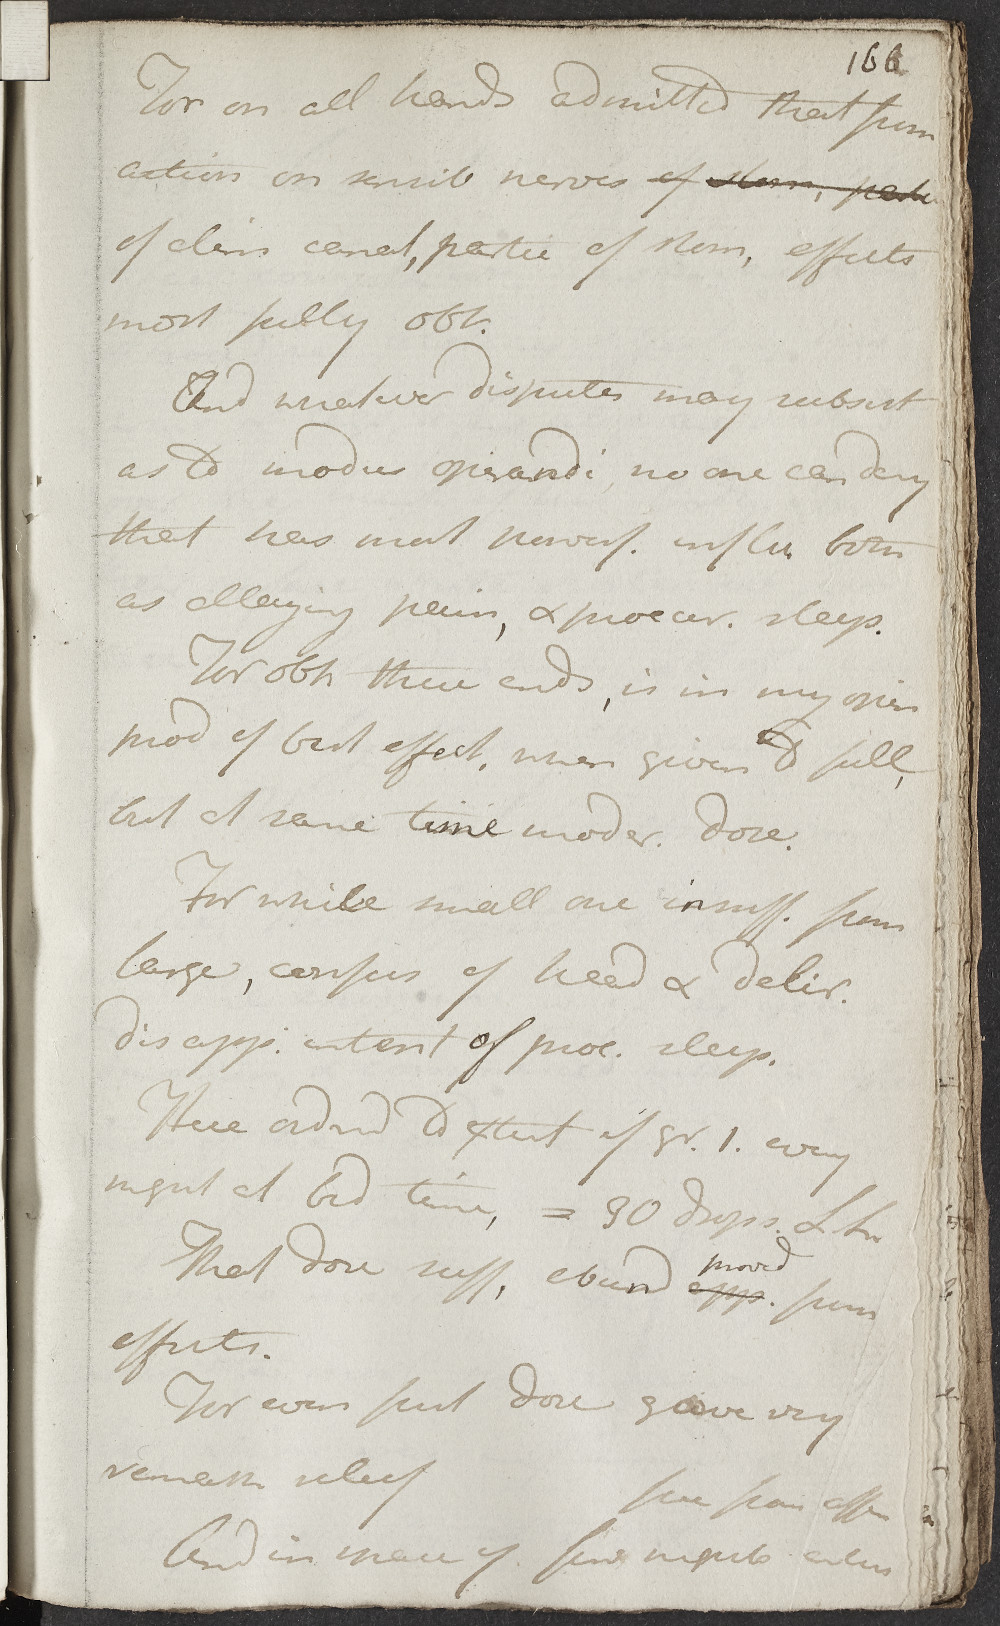 166
For on all hands admitted that from
action on sensib nerves of stom, partic
of alim canal, partic of stom, effects
most fully obt.
And whatever disputes may subsist
as to modus operandi, no one can deny
that has most powerf. influ both
as allaying pain, & procur. sleep.
For obt these ends, is in my opin
prod of best effect, when given to full,
but at same time moder. dose.
For while small one insuff. from
large, confus of head & delir.
disapp. intent of proc. sleep.
Here ordrd to extent of gr. 1. every
night at bed time, = 30 drops. L
That dose suff, abund app. from
provd
effects.
For even first dose gave very
remark relief
see from effe
And in space of five nights